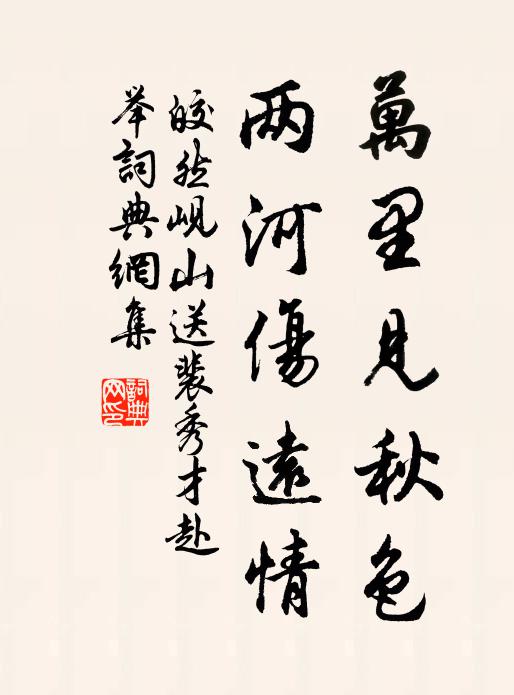 萬里見秋色
两河傷遠情
皎然峴山送裴秀才赴
举詞典網集
詞典网印